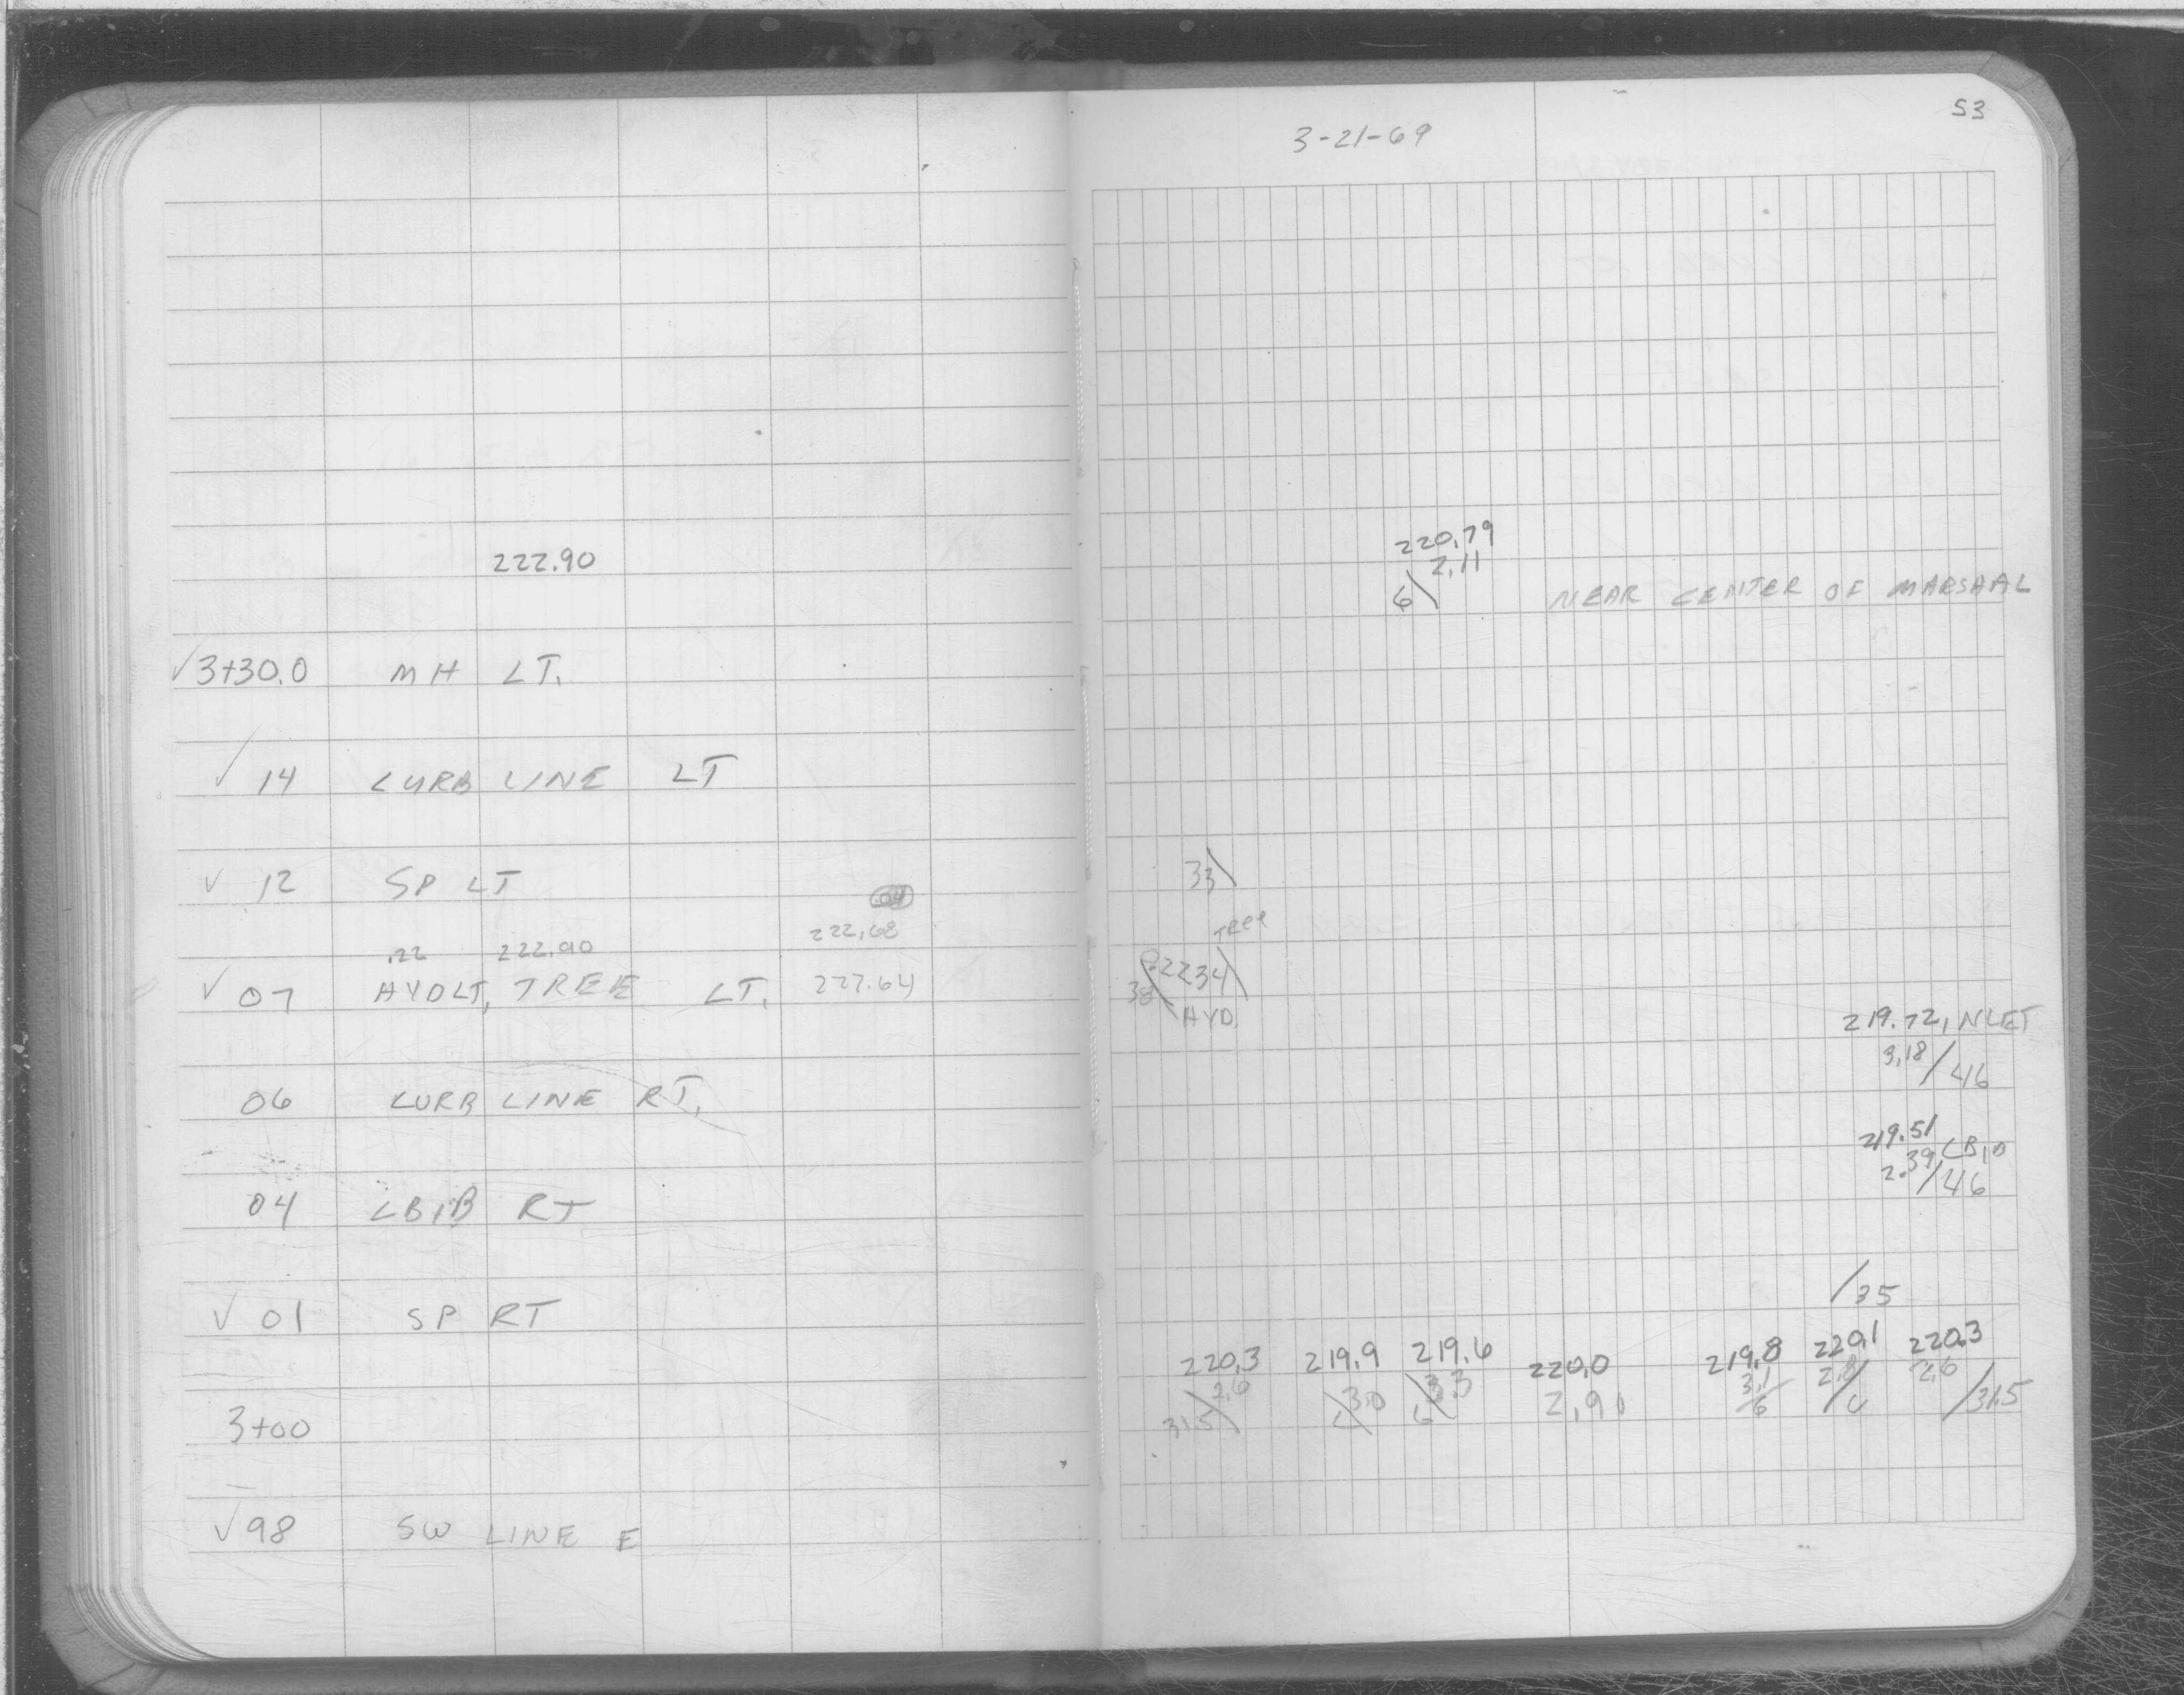 222.90
√3+30.0 MH LT.
√ 14 CURB LINE LT
√ 12 SP LT
.04
.22 222.90 222.68
√ 07 HYD LT, TREE LT. 222.64
06 CURB LINE RT.
04 CB,B RT
√ 01 SP RT
3+00
√98 SW LINE E
53
3-21-69
220.79
2.11
6\ NEAR CENTER OF MARSAAL
33\
TREE
38\ 34\
HYD.
219.72, INLET
3.18/46
219.51
2.39/46
/35
220.3 219.9 219.6 220.0 219.8 220.1 220.3
2.6 3.0 3.3 2.90 3.1 2.8 2.6
31.5\ 6\ /6 /31.5